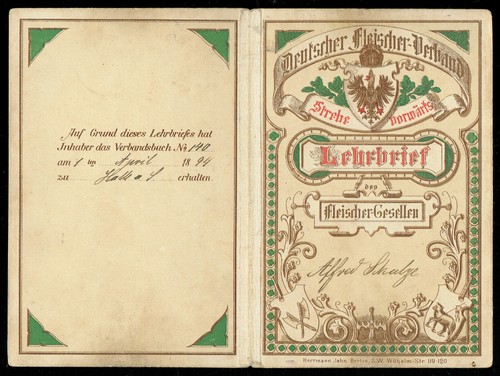 Auf Grund dieses Lehrbriefes hat
Inhaber das Verbandsbuch Nr. 140
am 1 ten April 1894
zu Halle a S erhalten.
Deutscher Fleischer-Verband
Strebe Vorwärts
Lehrbrief
des
Fleischer-Gesellen
Alfred Schulze
Herrmann Jahn, Berlin, S.W. Wilhelm-Str. 119-120